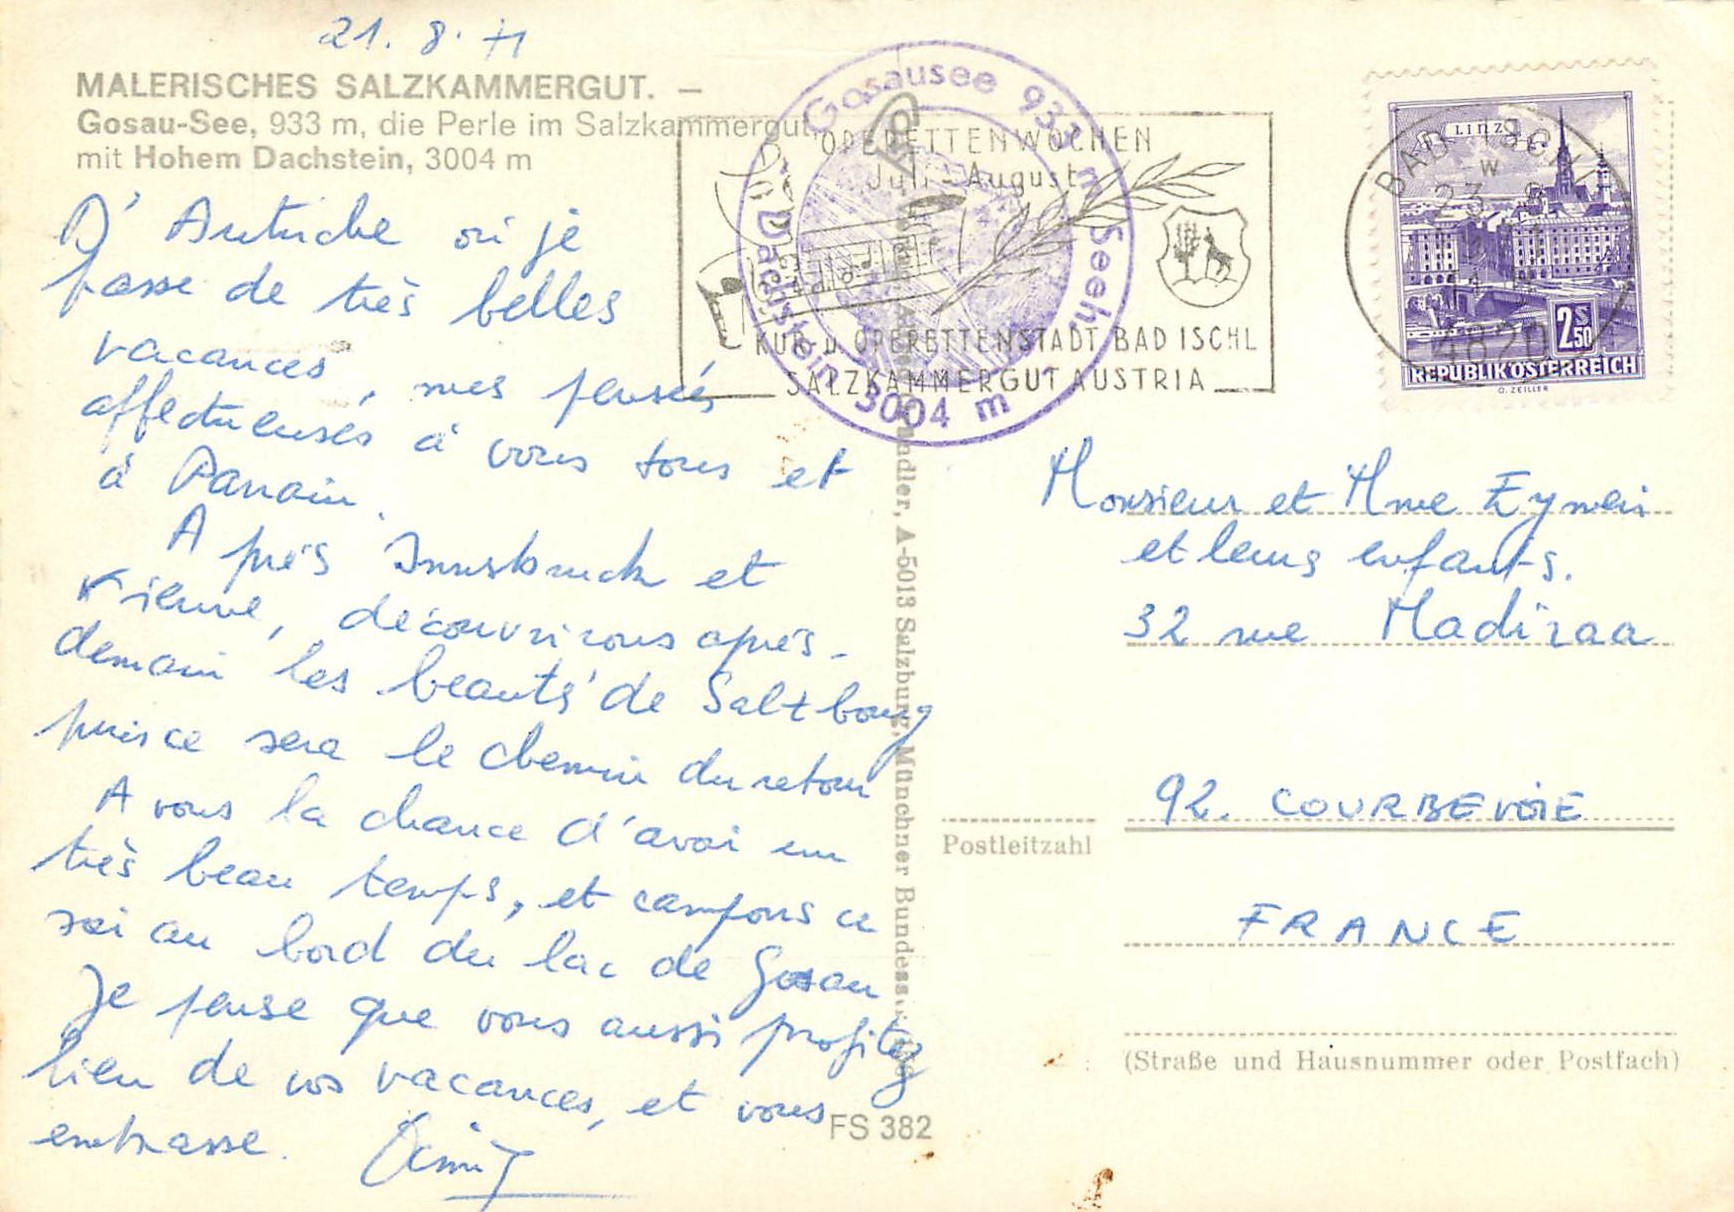 21.8.71
MALERISCHES SALZKAMMERGUT. –
Gosau-See, 933 m, die Perle im Salzkammergut,
mit Hohem Dachstein, 3004 m
D'Autriche où je
passe de très belles
vacances, mes pensées
affectueuses à vous tous et
à Parrain.
Après Innsbruck et
Vienne, découvrirons après-
demain les beautés de Saltzbourg
puis ce sera le chemin du retour
Avons la chance d'avoir un
très beau temps, et campons ce
soir au bord du lac de Gosau
Je pense que vous aussi profitez
bien de vos vacances, et vous
embrasse.
FS 382
Gosausee 933 m Seeh.
Dachstein 3004 m
OPERETTENWOCHEN
Juli - August
KUR- u. OPERETTENSTADT BAD ISCHL
SALZKAMMERGUT AUSTRIA
A-5013 Salzburg, Münchner Bundess
BAD ISCHL
w
23. 8.
4820
LINZ
2S50
REPUBLIK ÖSTERREICH
O. ZEILLER
Monsieur et Mme
et leurs enfants.
32 rue Madiraa
92. COURBEVOIE
Postleitzahl
FRANCE
(Straße und Hausnummer oder Postfach)